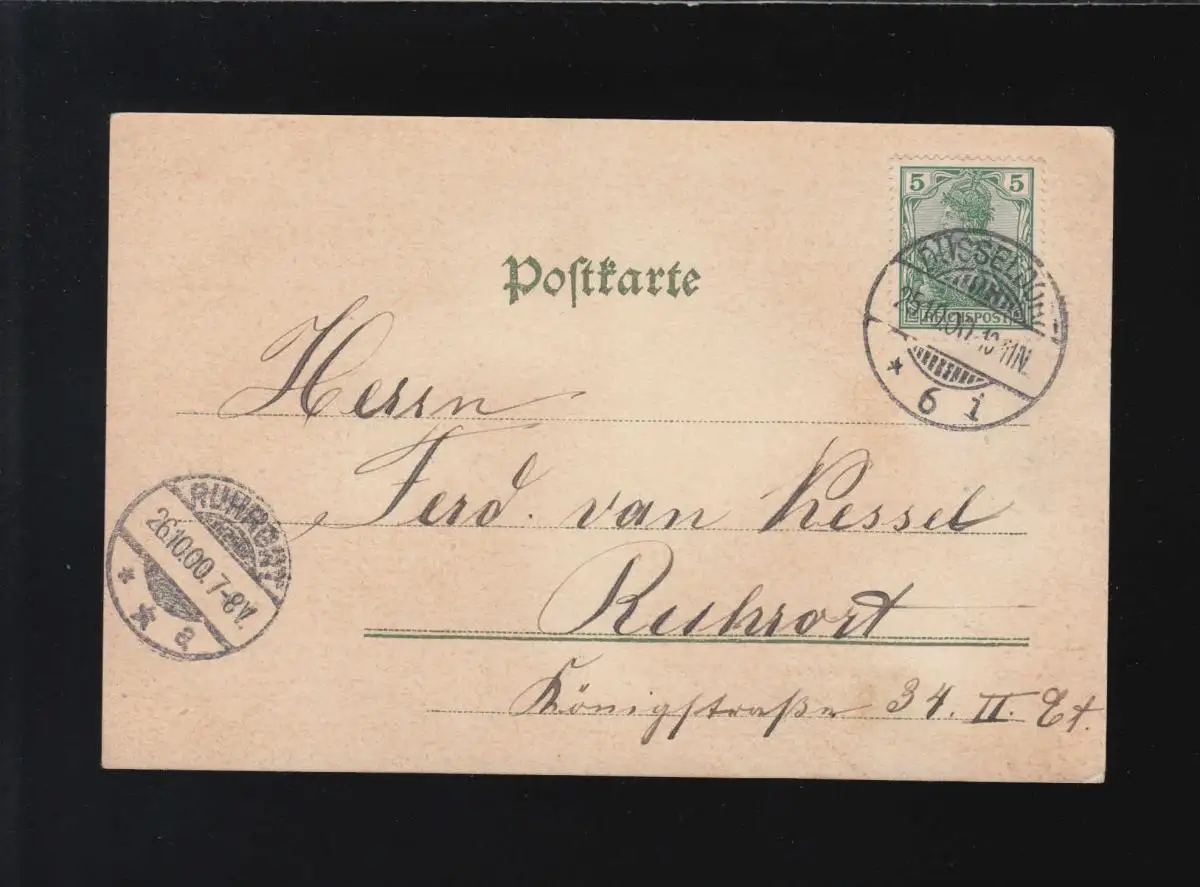 5 5
REICHSPOST
DÜSSELDORF
25.10.00. 10-11N.
* 6 i
Postkarte
Herrn
Ferd. van Kessel
Ruhrort
Königstraße 34. II. Et.
RUHRORT
26.10.00. 7-8V.
* * a.